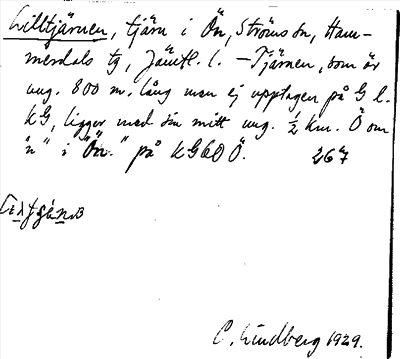 Lilltjärnen, tjärn i Ön, Ströms sn, Ham-
merdals tg, Jämtl. l. – Tjärnen, som är
ung. 800 m. lång men ej upptagen på G l.
KG, ligger med sin mitt ung. ½ km. Ö om
"n" i "Ön." på KG60 Ö. 267
C. Lindberg 1929.